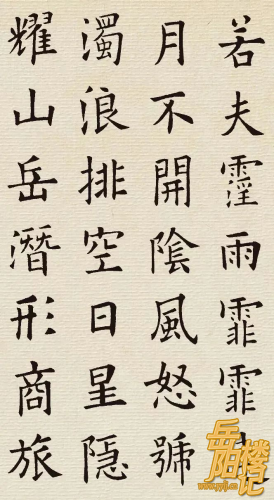 若夫霪雨霏霏
月不開陰風怒號
濁浪排空日星隱
耀山岳潛形商旅
岳阳楼记